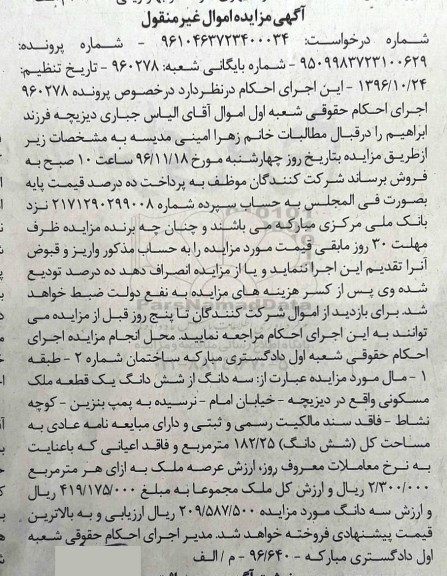 آگهی مزایده اموال غیر منقول
شماره درخواست: ۹۶۱۰۴۶۳۷۲۳۴۰۰۰۳۴ - شماره پرونده:
۹۵۰۹۹۸۳۷۲۳۱۰۰۶۲۹ - شماره بایگانی شعبه: ۹۶۰۲۷۸ - تاریخ تنظیم:
۱۳۹۶/۱۰/۲۴ - این اجرای احکام درنظر دارد درخصوص پرونده ۹۶۰۲۷۸
اجرای احکام حقوقی شعبه اول اموال آقای الیاس جباری دیزیچه فرزند
ابراهیم را درقبال مطالبات خانم زهرا امینی مدیسه به مشخصات زیر
ازطریق مزایده بتاریخ روز چهارشنبه مورخ ۹۶/۱۱/۱۸ ساعت ۱۰ صبح به
فروش برساند شرکت کنندگان موظف به پرداخت ده درصد قیمت پایه
بصورت فی المجلس به حساب سپرده شماره ۲۱۷۱۲۹۰۲۹۹۰۰۸ نزد
بانک ملی مرکزی مبارکه می باشند و چنان چه برنده مزایده ظرف
مهلت ۳۰ روز مابقی قیمت مورد مزایده را به حساب مذکور واریز و قبوض
آنرا تقدیم این اجرا ننماید و یا از مزایده انصراف دهد ده درصد تودیع
شده وی پس از کسر هزینه های مزایده به نفع دولت ضبط خواهد
شد. برای بازدید از اموال شرکت کنندگان تا پنج روز قبل از مزایده می
توانند به این اجرای احکام مراجعه نمایید. محل انجام مزایده اجرای
احکام حقوقی شعبه اول دادگستری مبارکه ساختمان شماره ۲ - طبقه
۱ - مال مورد مزایده عبارت از: سه دانگ از شش دانگ یک قطعه ملک
مسکونی واقع در دیزیچه - خیابان امام - نرسیده به پمپ بنزین - کوچه
نشاط - فاقد سند مالکیت رسمی و ثبتی و دارای مبایعه نامه عادی به
مساحت کل (شش دانگ) ۱۸۲/۲۵ مترمربع و فاقد اعیانی که باعنایت
به نرخ معاملات معروف روز، ارزش عرصه ملک به ازای هر مترمربع
۲/۳۰۰/۰۰۰ ریال و ارزش کل ملک مجموعا به مبلغ ۴۱۹/۱۷۵/۰۰۰ ریال
و ارزش سه دانگ مورد مزایده ۲۰۹/۵۸۷/۵۰۰ ریال ارزیابی و به بالاترین
قیمت پیشنهادی فروخته خواهد شد. مدیر اجرای احکام حقوقی شعبه
اول دادگستری مبارکه - ۹۶/۶۴۰ - م / الف